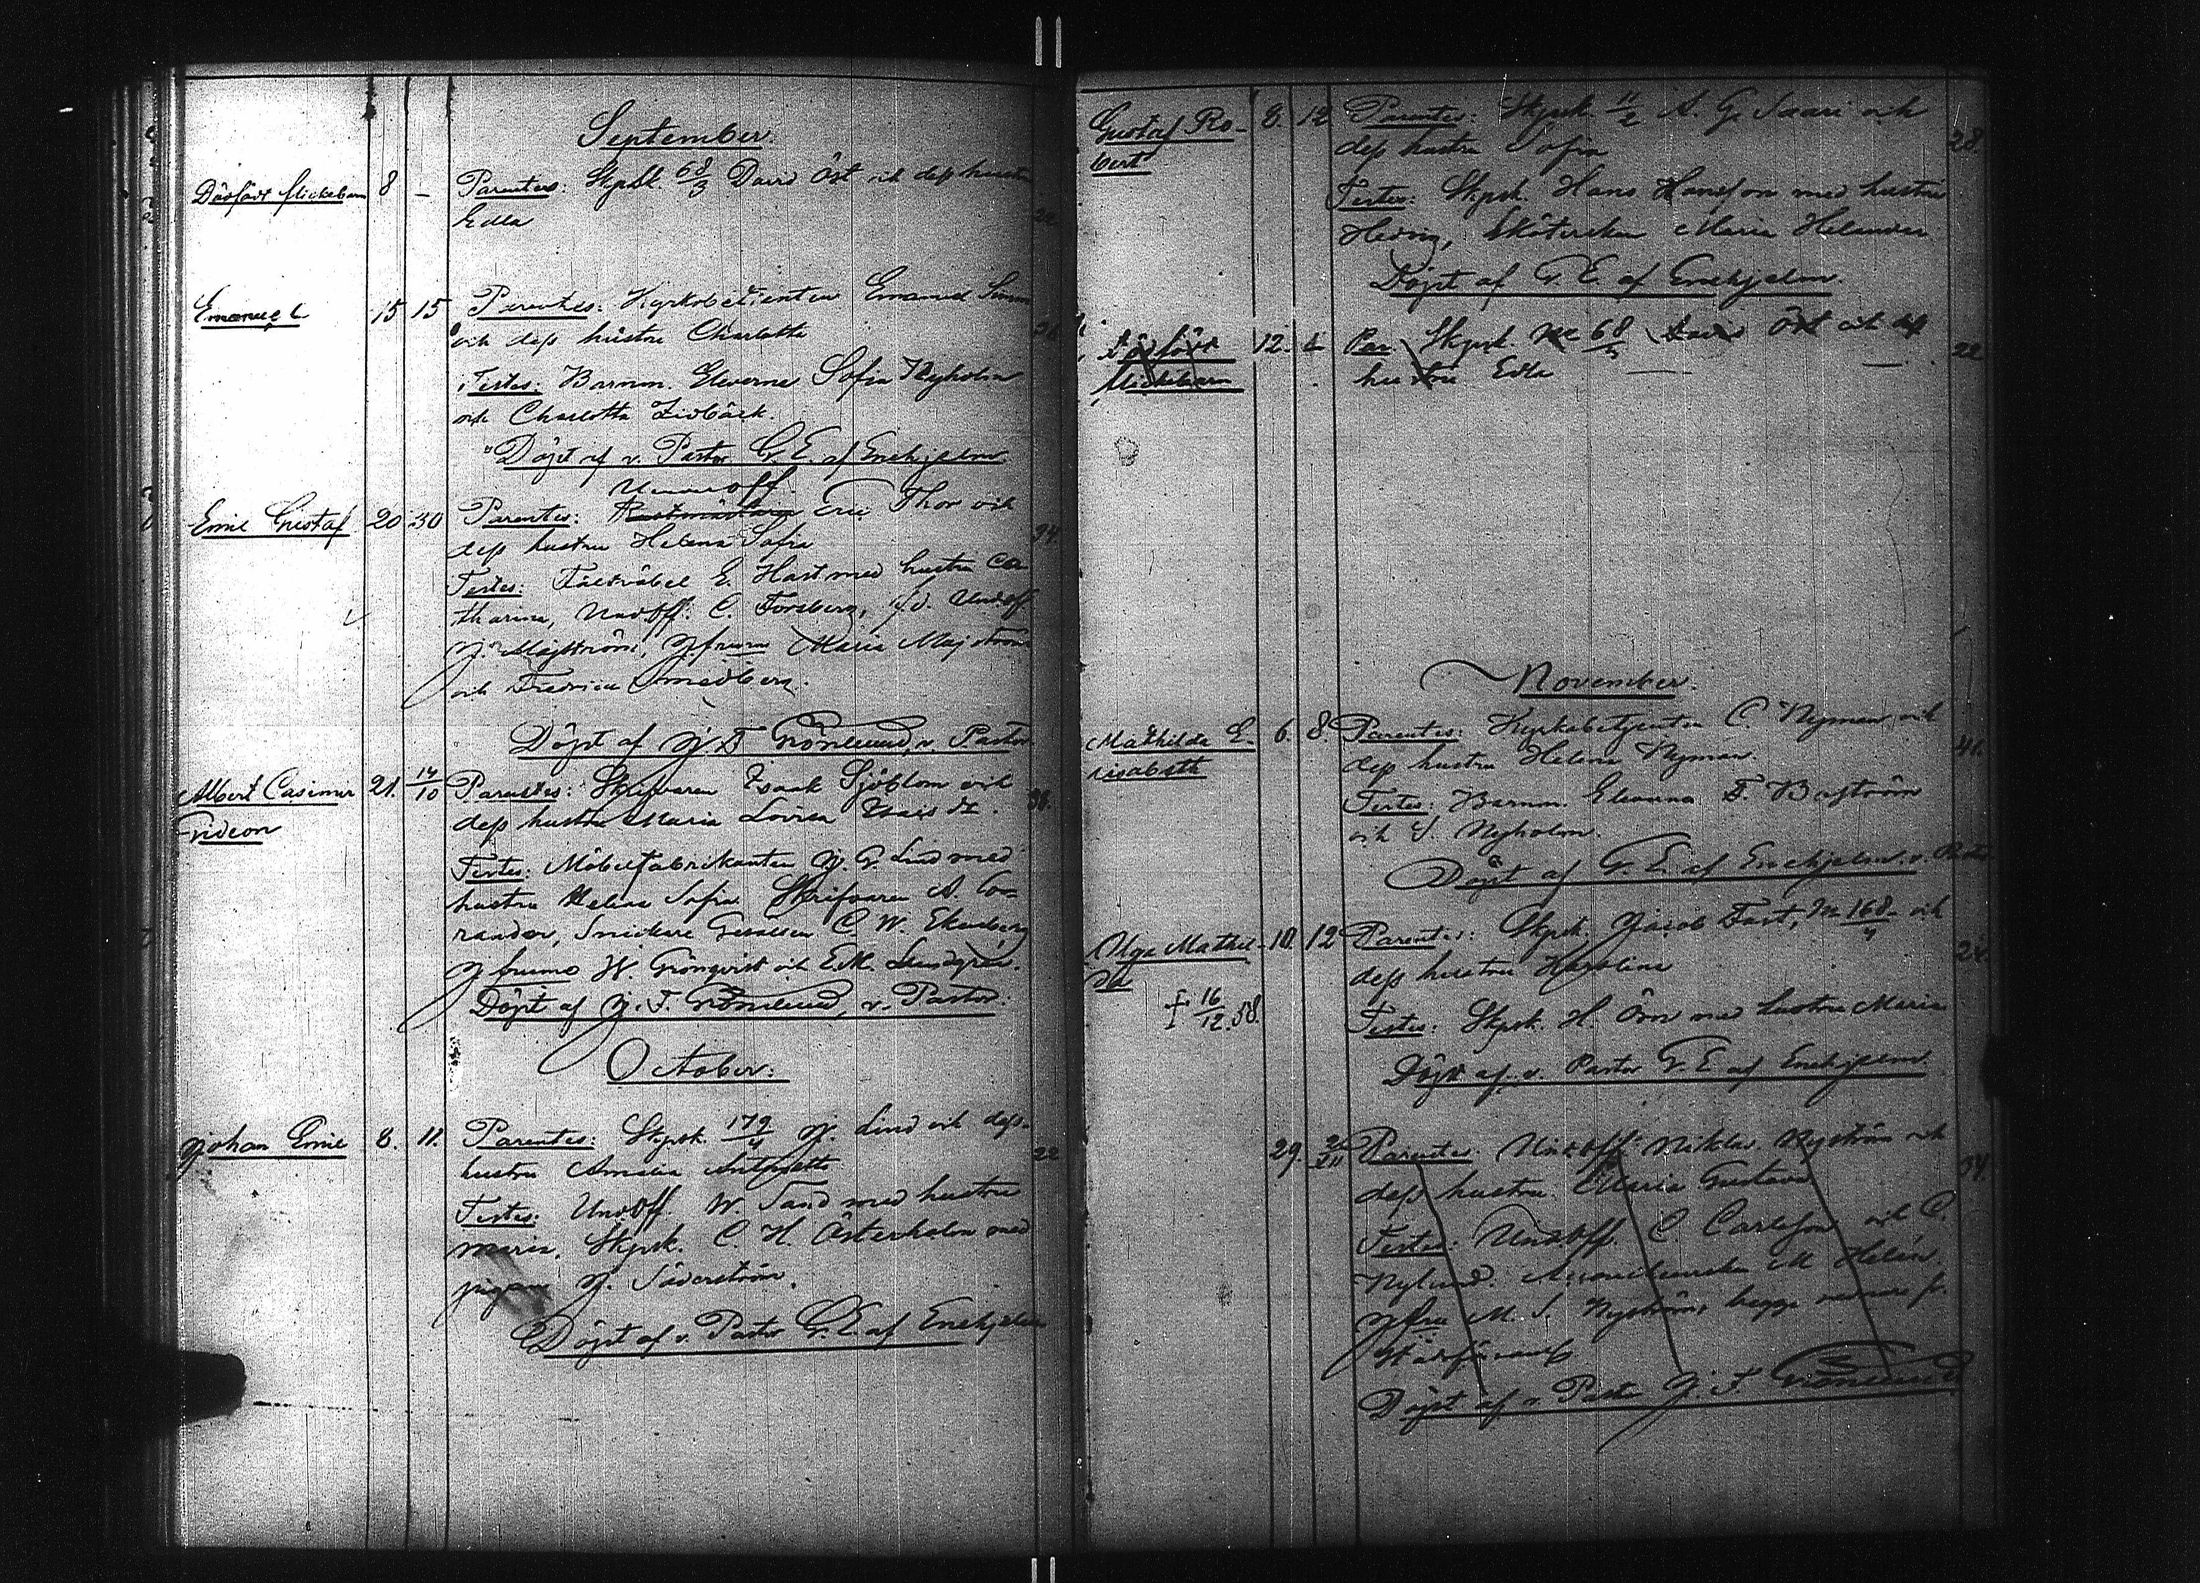 September.
Dödfödt flickebarn 8 – Parentes: Skpsk. 68/3 David Öst och dess hustru 22
Edla
Emanuel 15 15 Parentes: Kyrkobetienten Emanuel
och dess hustru Charlotta
Testes: Barnm. Eleverne Sofia Nyholm
och Charlotta Lidbäck.
Döpt af v. Pastor G. E. af Enehjelm
Underoff.
Emil Gustaf 20 30 Parentes: Eric Thor och
dess hustru Helena Sofia 34
Testes: Fältväbel E. Hast med hustru Ca-
tharina, Undoff. C. Forsberg, f.d. Undoff.
J. Majström, Jfrurna Maria Majström
och Fredrica Smedberg.
Döpt af J. F. Grönlund, v. Pastor
Albert Casimir 21. 14/10 Parentes: Skrifvaren Isaak Sjöblom och
Fideon dess hustru Maria Lovisa
Testes: Möbelfabrikanten J. G. Lind med
hustru Helena Sofia Skrifvaren A. Co-
rander, Snickare Gesällen C. W. Ekenberg
Jfruna W. Grönqvist och E. M. Lundgren.
Döpt af J. F. Grönlund, v. Pastor.
October.
Johan Emil 8. 11. Parentes: Skpsk. 179/4 J. Lind och dess
hustru Amalia Antoinette 22
Testes: Undoff. W. Sand med hustru
Maria, Skpsk. C. H. Österholm med
pigan J. Söderström.
Döpt af v. Pastor G. E. af Enehjelm
Gustaf Ro- 8. 12 Parentes: Skpsk. 11/2 A. G. Saari och
bert dess hustru Sofia 28.
Testes: Skpsk. Hans Hansson med hustru
Hedvig, Sköterskan Maria Helander
Döpt af G. E. af Enehjelm.
Dödfödt 12. Par. Skpsk. No 68/3 David Öst och dess 22
flickebarn hustru Edla
November.
Mathilda E- 6. 8. Parentes: Kyrkobetjenten C. Nyman och
lisabeth dess hustru Helena Nyman. 41.
Testes: Barnm. Eleverna F. Boström
och S. Nyholm.
Döpt af G. E. af Enehjelm. v. Pastor
Olga Mathil- 10. 12 Parentes: Skpsk. Jacob Fast, No 168/4 och
da dess hustru Karolina 24.
† 16/12.58. Testes: Skpsk. H. Örn med hustru Maria
Döpt af v. Pastor G. E. af Enehjelm
29. Parentes. Undoff. Niklas Nyström och
dess hustru Maria Gustava 34.
Testes: Undoff. C. Carlsson och C.
Nylund. M. Helén,
Jfru M. S. Nyström, begge
Döpt af v. Pastor J. F. Grönlund